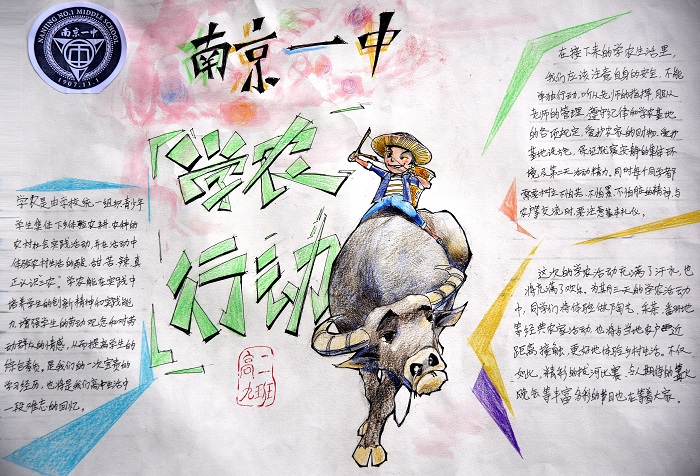 NANJING NO.1 MIDDLE SCHOOL
南京一中
1907.11.1
南京一中
学农
行动
高二
九班
学农是由学校统一组织青少年
学生集体下乡体验农耕、农种的
农村社会实践活动,并在活动中
体验农村生活的酸、甜、苦、辣,真
正认识"三农"。学农能在实践中
培养学生的创新精神和实践能
力,增强学生的劳动观念和对劳
动群众的情感,从而提高学生的
综合素质,是我们的一次宝贵的
学习经历,也将是我们高中生活中
一段难忘的回忆。
在接下来的学农生活里,
我们应该注意自身的安全,不能
单独行动,听从老师的指挥,服从
老师的管理,遵守纪律和学农基地
的各项规定,爱护农家的财物,爱护
基地设施,保证就寝安静的集体环
境及第二天活动精力。同时每个同学都
要树立不怕苦、不怕累、不怕脏的精神,与
农撑交流时,要注意基本礼仪。
这次的学农活动充满了汗水,也
将充满了欢乐,为期三天的学农活动
中,同学们将体验做陶艺、采茶、翻地
等经典农家活动,也将与当地农户更近
距离接触,更好地体验乡村生活。不仅
如此,精彩的拔河比赛、令人期待的篝火
晚会等丰富多彩的节目也在等着大家。